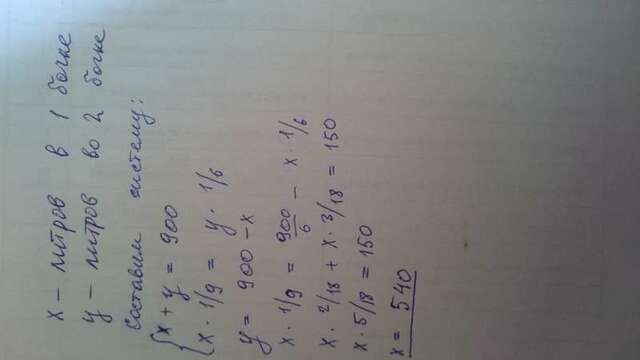 x – литров в 1 бочке
y – литров во 2 бочке
Составим систему:
{x + y = 900
x · 1/9 = y · 1/6
y = 900 – x
x · 1/9 = 900/6 – x · 1/6
x · 2/18 + x · 3/18 = 150
x · 5/18 = 150
x = 540